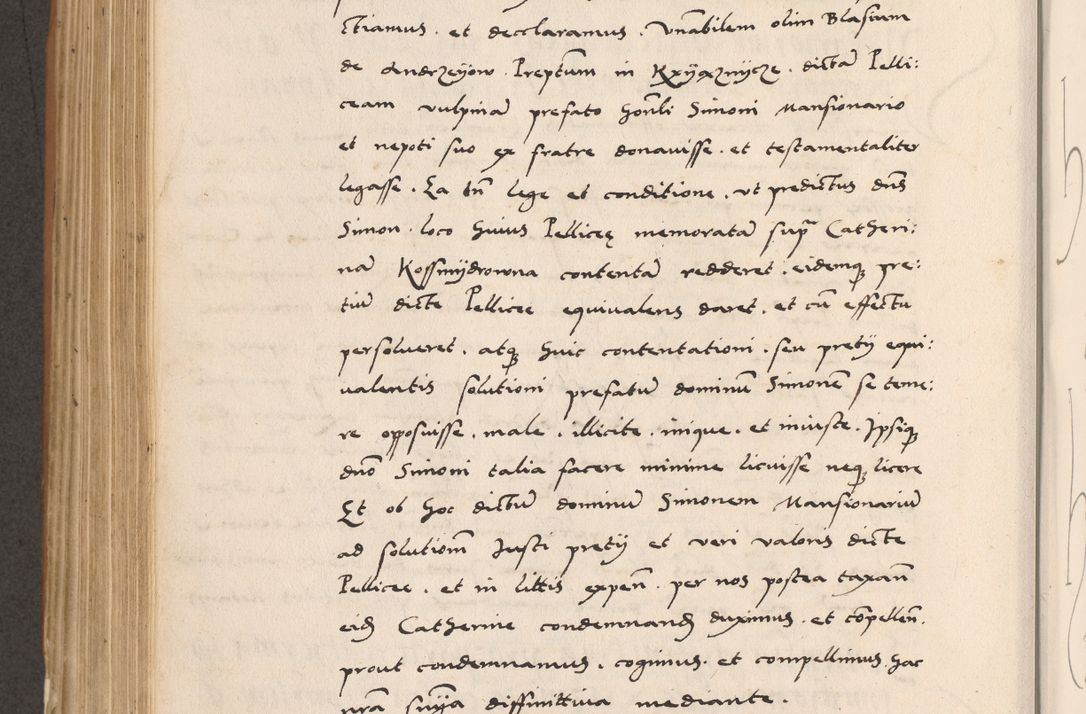 ctiamus . et decclaramus . Vn̄abilem olim Blasium
de Andrzeÿow . Preptūm in Kxÿązmÿcze . dictā Pelli:
ceam vulpinā prefato hon̄li Simoni Mansionario
et nepoti suo ex fratre donauisse . et testamentaliter
legasse . Ea tn̄ lege et conditione . vt predictus dn̄s
Simon . loco huius Pelliceę memoratā supra Catheri:
nā Kossmÿdrowna contentā redderet . eidemq; pre:
tiū dicte Pellicee equiualens daret . et cū effectu
persolueret . atq; huic contentationi . seu pretÿ equi:
valentis solutioni prefatū dominū Simonē se teme:
re opposuisse . male . illicite . inique . et iniuste . Ipsiq;
dn̄o Simoni talia facere minime licuisse neq; licere
Et ob hoc dictū dominū Simonem Mansionariū
ad solutionē Justi pretÿ et veri valoris dicte
Pellicee . et in litt̄is expen̄ . per nos postea taxan̄
eid̄ Catherine condemnand̄ duximus . et cōpellen̄ .
prout condemnamus . cogimus . et compellimus hac
nr̄a sn̄ÿa diffinittiua mediante .